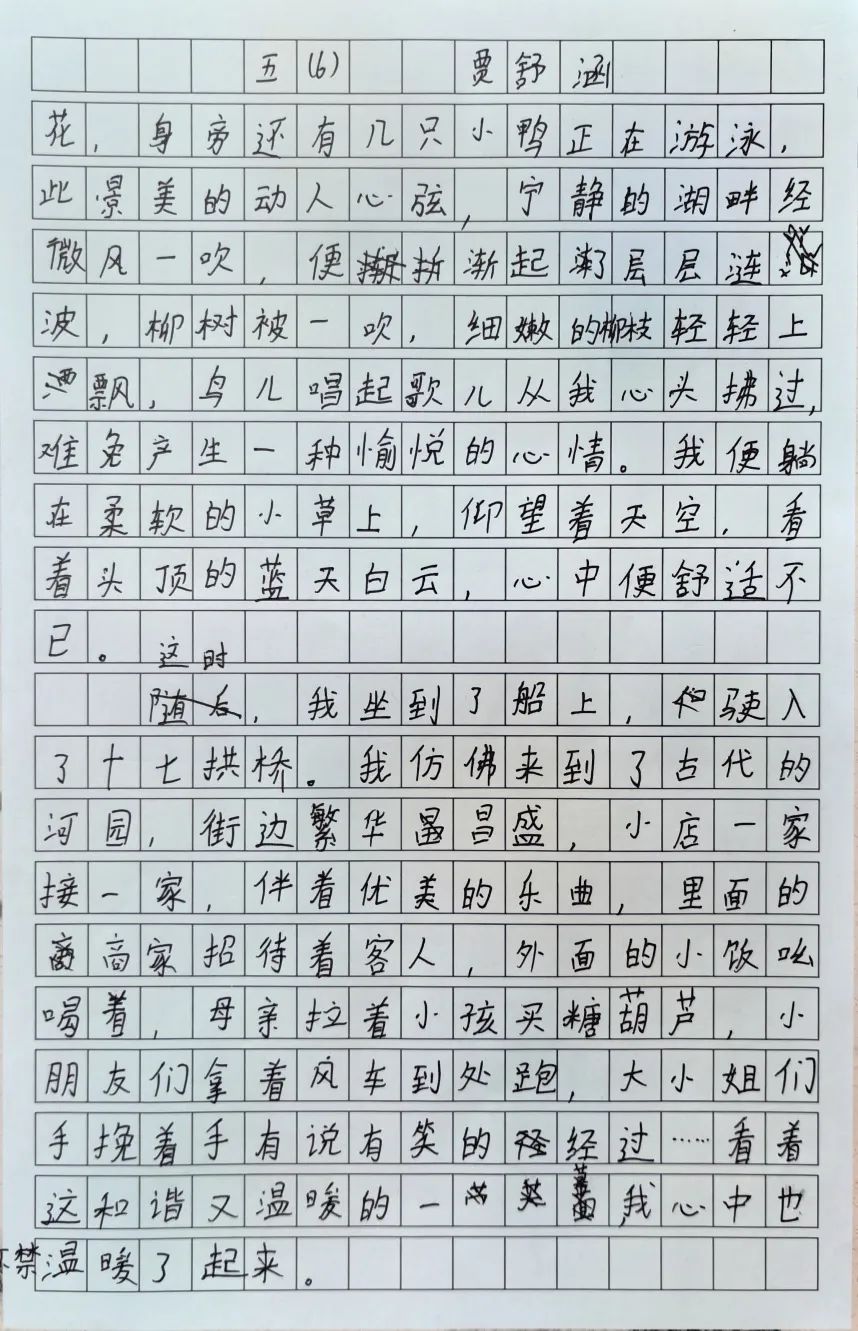 五(6) 贾舒涵
花，身旁还有几只小鸭正在游泳，
此景美的动人心弦，宁静的湖畔经
微风一吹，便渐起层层涟
波，柳树被一吹，细嫩的柳枝轻轻上
飘，鸟儿唱起歌儿从我心头拂过，
难免产生一种愉悦的心情。我便躺
在柔软的小草上，仰望着天空，看
着头顶的蓝天白云，心中便舒适不
已。这时
随后，我坐到了船上，驶入
了十七拱桥。我仿佛来到了古代的
河园，街边繁华昌盛，小店一家
接一家，伴着优美的乐曲，里面的
商家招待着客人，外面的小饭吆
喝着，母亲拉着小孩买糖葫芦，小
朋友们拿着风车到处跑，大小姐们
手挽着手有说有笑的经过……看着
这和谐又温暖的一幕，我心中也
不禁温暖了起来。